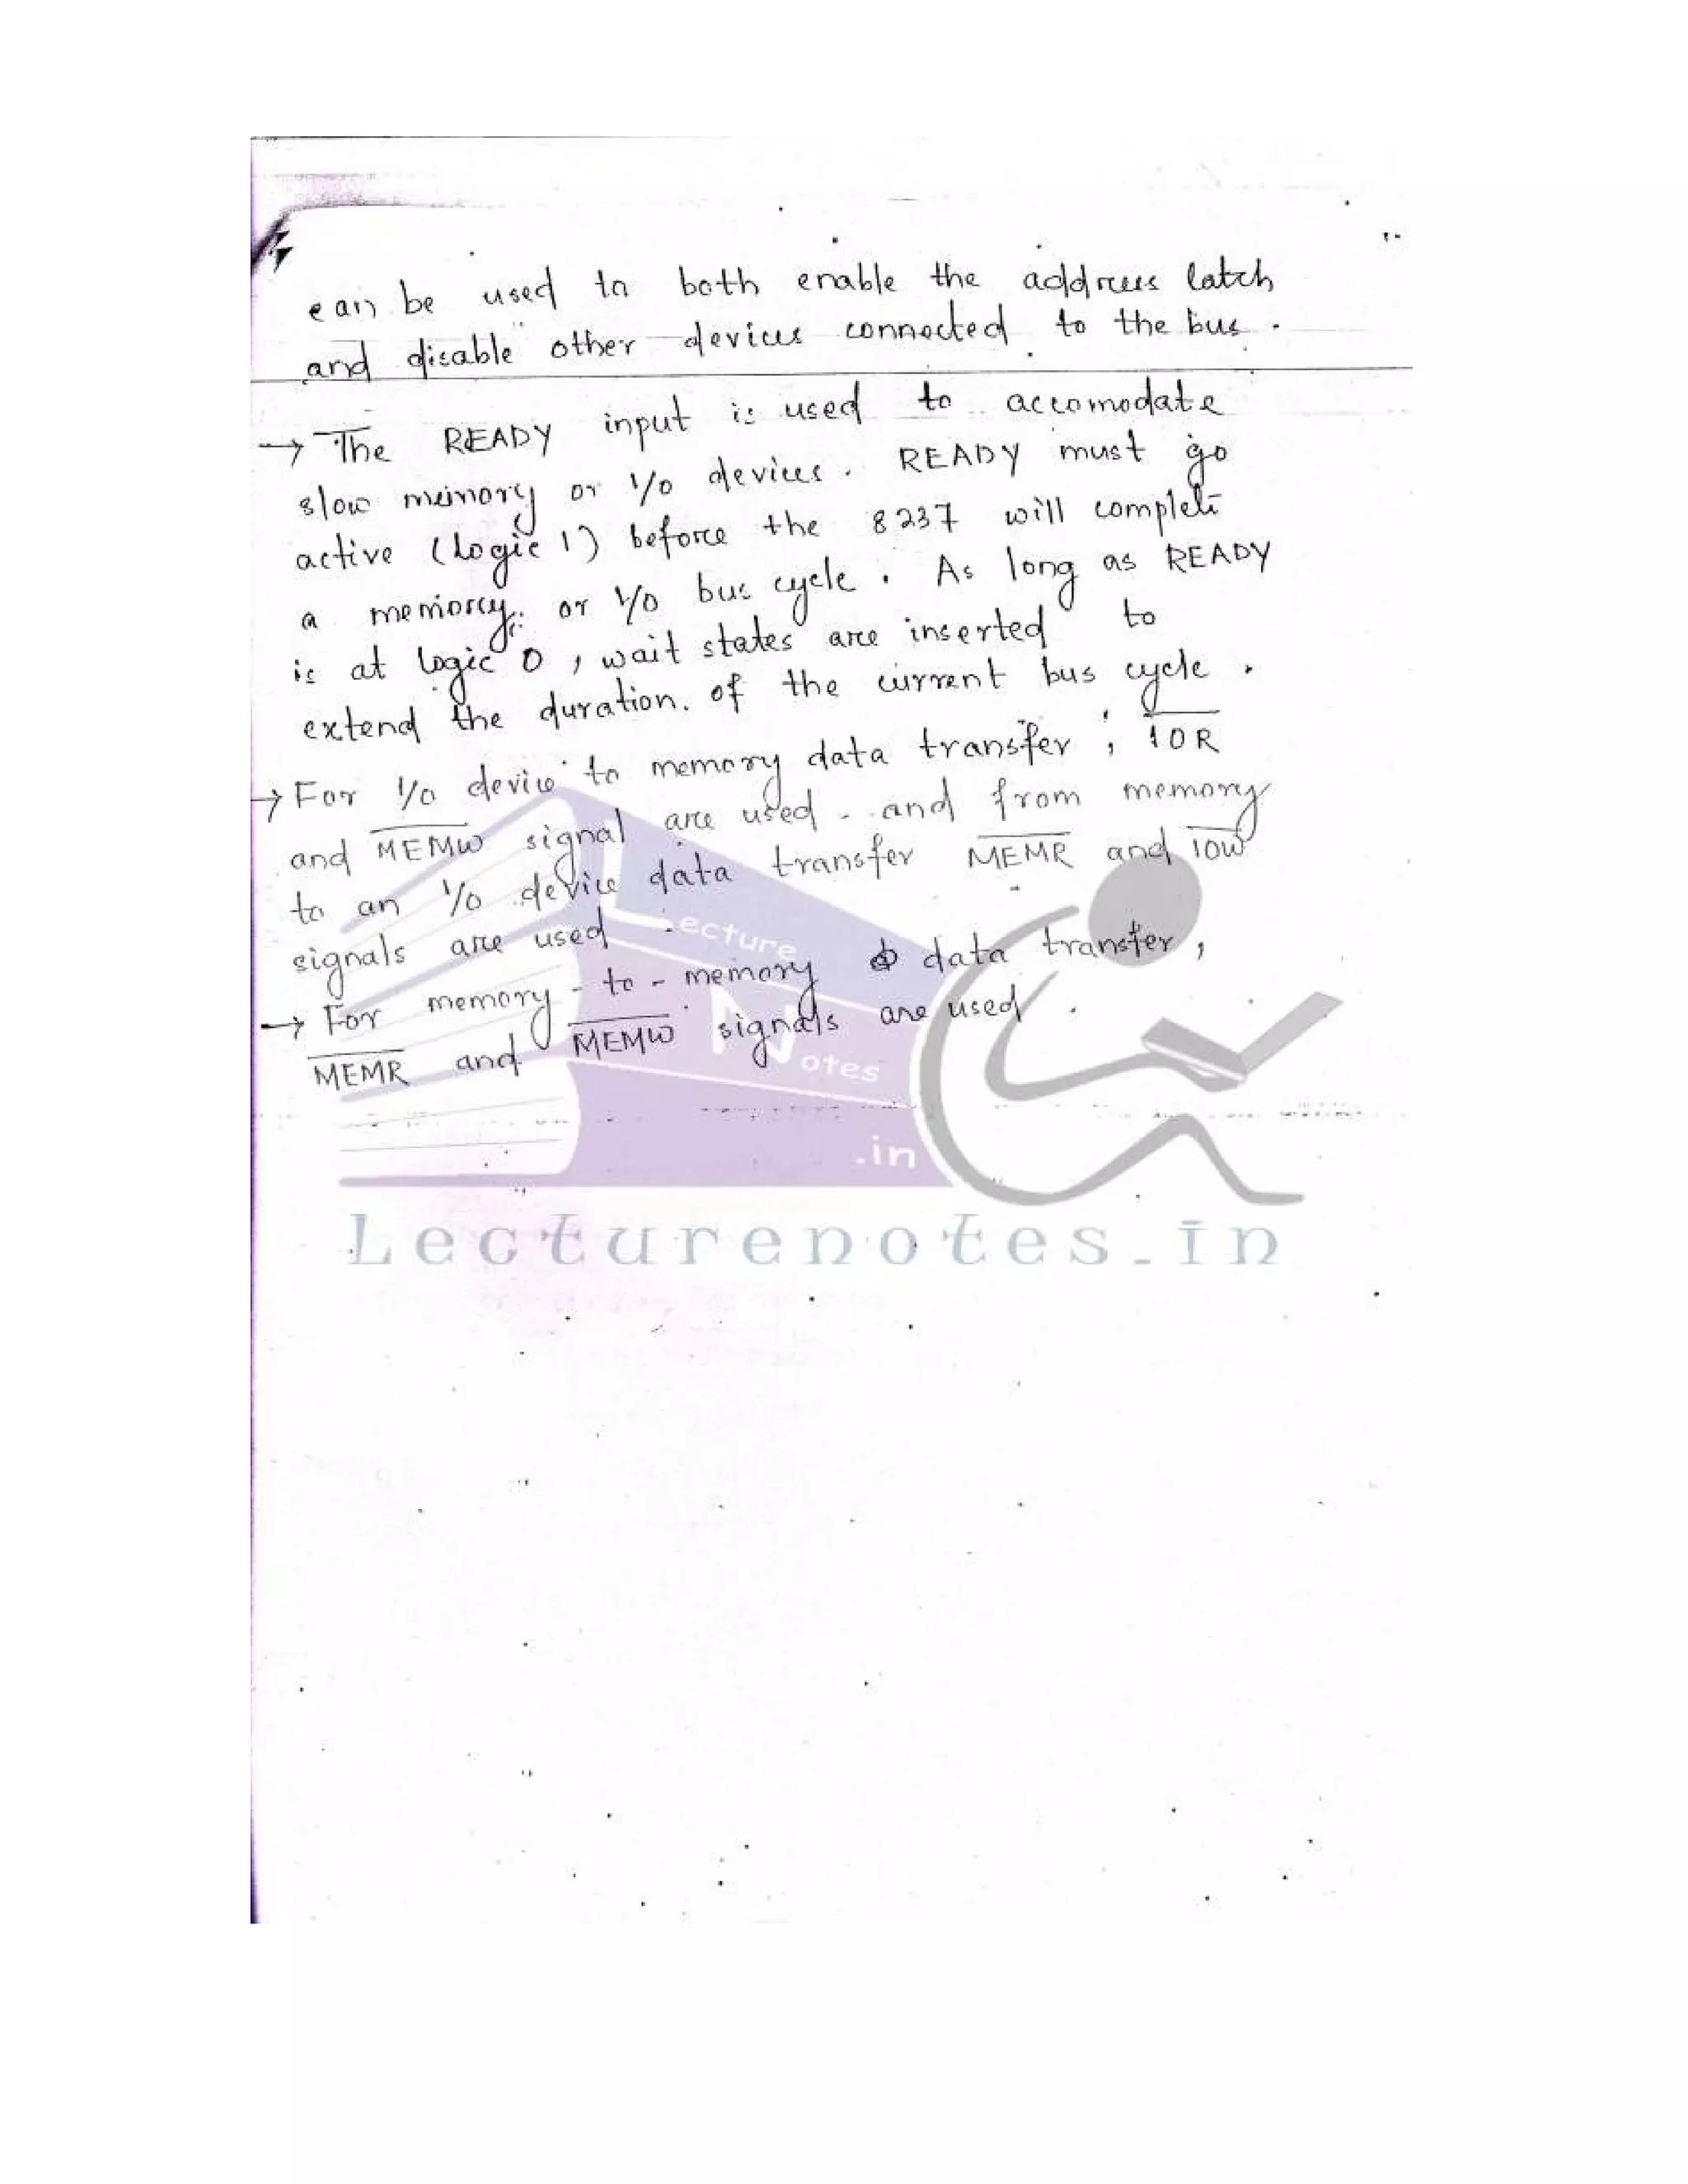 can be used to both enable the address latch
and disable other devices connected to the bus.
→ The READY input is used to accomodate
slow memory or I/O devices. READY must go
active (Logic 1) before the 8237 will complete
a memory or I/O bus cycle. As long as READY
is at logic 0, wait states are inserted to
extend the duration of the current bus cycle.
→ For I/O device to memory data transfer, I̅O̅R̅
and M̅E̅M̅W̅ signal are used. and from memory
to an I/O device data transfer M̅E̅M̅R̅ and I̅O̅W̅
signals are used.
→ For memory-to-memory data transfer,
M̅E̅M̅R̅ and M̅E̅M̅W̅ signals are used.
Lecture
Notes
.in
Lecturenotes.in